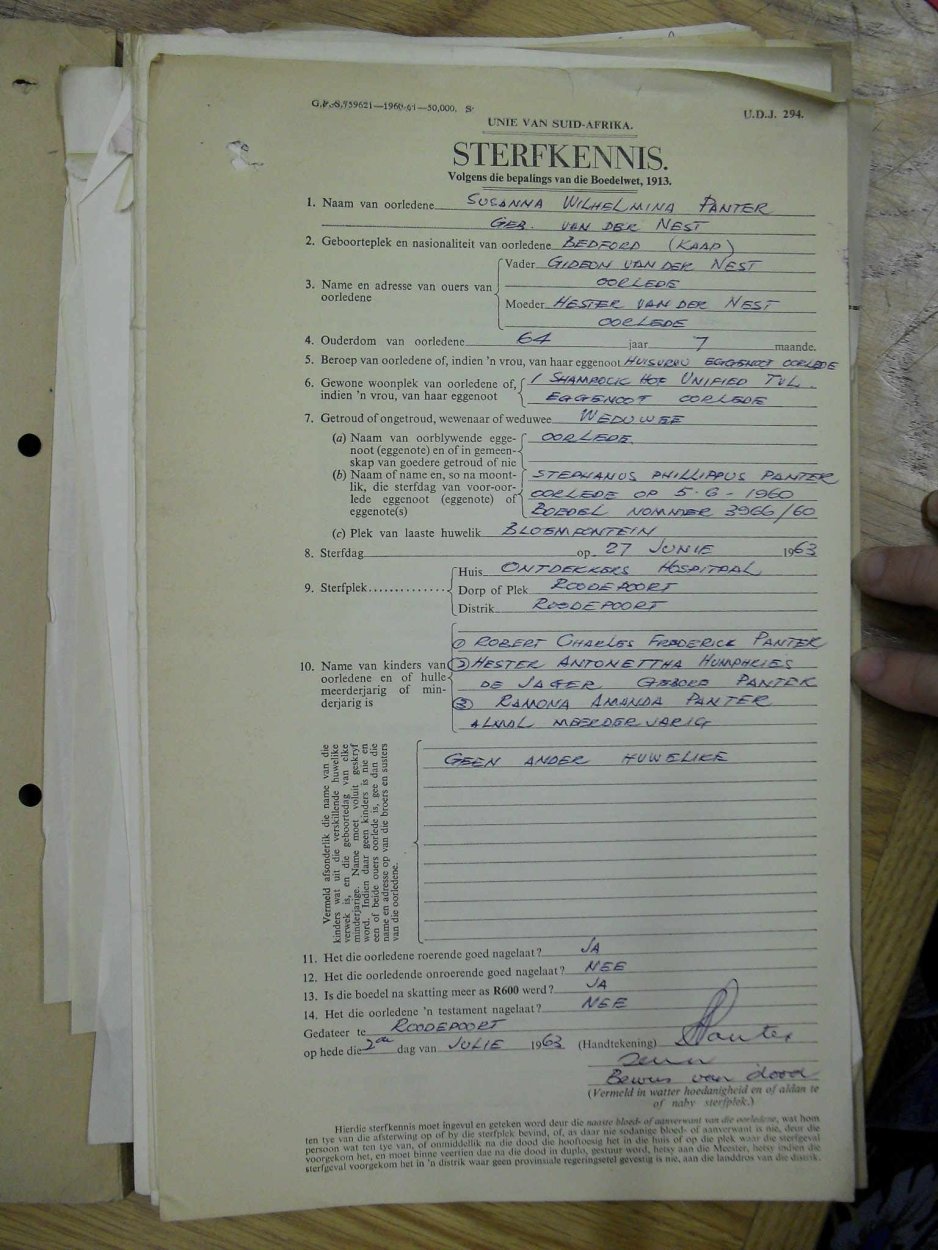 G.P.-S.759621—1960-61—50,000. S.
U.D.J. 294.
UNIE VAN SUID-AFRIKA.
STERFKENNIS.
Volgens die bepalings van die Boedelwet, 1913.
1. Naam van oorledene SUSANNA WILHELMINA PANTER
GEB. VAN DER NEST
2. Geboorteplek en nasionaliteit van oorledene BEDFORD (KAAP)
3. Name en adresse van ouers van oorledene
Vader GIDEON VAN DER NEST
OORLEDE
Moeder HESTER VAN DER NEST
OORLEDE
4. Ouderdom van oorledene 64 jaar 7 maande.
5. Beroep van oorledene of, indien 'n vrou, van haar eggenoot HUISVROU EGGENOOT OORLEDE
6. Gewone woonplek van oorledene of, indien 'n vrou, van haar eggenoot
1 SHAMROCK HOF UNIFIED TVL.
EGGENOOT OORLEDE
7. Getroud of ongetroud, wewenaar of weduwee WEDUWEE
(a) Naam van oorblywende egge-
noot (eggenote) en of in gemeen-
skap van goedere getroud of nie
OORLEDE.
(b) Naam of name en, so na moont-
lik, die sterfdag van voor-oor-
lede eggenoot (eggenote) of
eggenote(s)
STEPHANUS PHILLIPPUS PANTER
OORLEDE OP 5-6-1960
BOEDEL NOMMER 3966/60
(c) Plek van laaste huwelik BLOEMFONTEIN
8. Sterfdag op 27 JUNIE 1963
9. Sterfplek
Huis ONTDEKKERS HOSPITAAL
Dorp of Plek ROODEPOORT
Distrik ROODEPOORT
10. Name van kinders van
oorledene en of hulle
meerderjarig of min-
derjarig is
① ROBERT CHARLES FREDERICK PANTER
② HESTER ANTONETTHA HUMPHRIES
DE JAGER GEBORE PANTER
③ RAMONA AMANDA PANTER
ALMAL MEERDERJARIG
Vermeld afsonderlik die name van die
kinders wat uit die verskillende huwelike
verwek is, en die geboortedag van elke
minderjarige. Name moet voluit geskryf
word. Indien daar geen kinders is nie en
een of beide ouers oorlede is, gee dan die
name en adresse op van die broers en susters
van die oorledene.
GEEN ANDER HUWELIKE
11. Het die oorledene roerende goed nagelaat? JA
12. Het die oorledende onroerende goed nagelaat? NEE
13. Is die boedel na skatting meer as R600 werd? JA
14. Het die oorledene 'n testament nagelaat? NEE
Gedateer te ROODEPOORT
op hede die 2de dag van JULIE 1963 (Handtekening) Panter
Seun
Bewus van dood
(Vermeld in watter hoedanigheid en of aldan te
of naby sterfplek.)
Hierdie sterfkennis moet ingevul en geteken word deur die naaste bloed- of aanverwant van die oorledene, wat hom
ten tye van die afsterwing op of by die sterfplek bevind, of, as daar nie sodanige bloed- of aanverwant is nie, deur die
persoon wat ten tye van, of onmiddellik na die dood die hooftoesig het in die huis of op die plek waar die sterfgeval
voorgekom het, en moet binne veertien dae na die dood in duplo, gestuur word, hetsy aan die Meester, hetsy indien die
sterfgeval voorgekom het in 'n distrik waar geen provinsiale regeringsetel gevestig is nie, aan die landdros van die distrik.